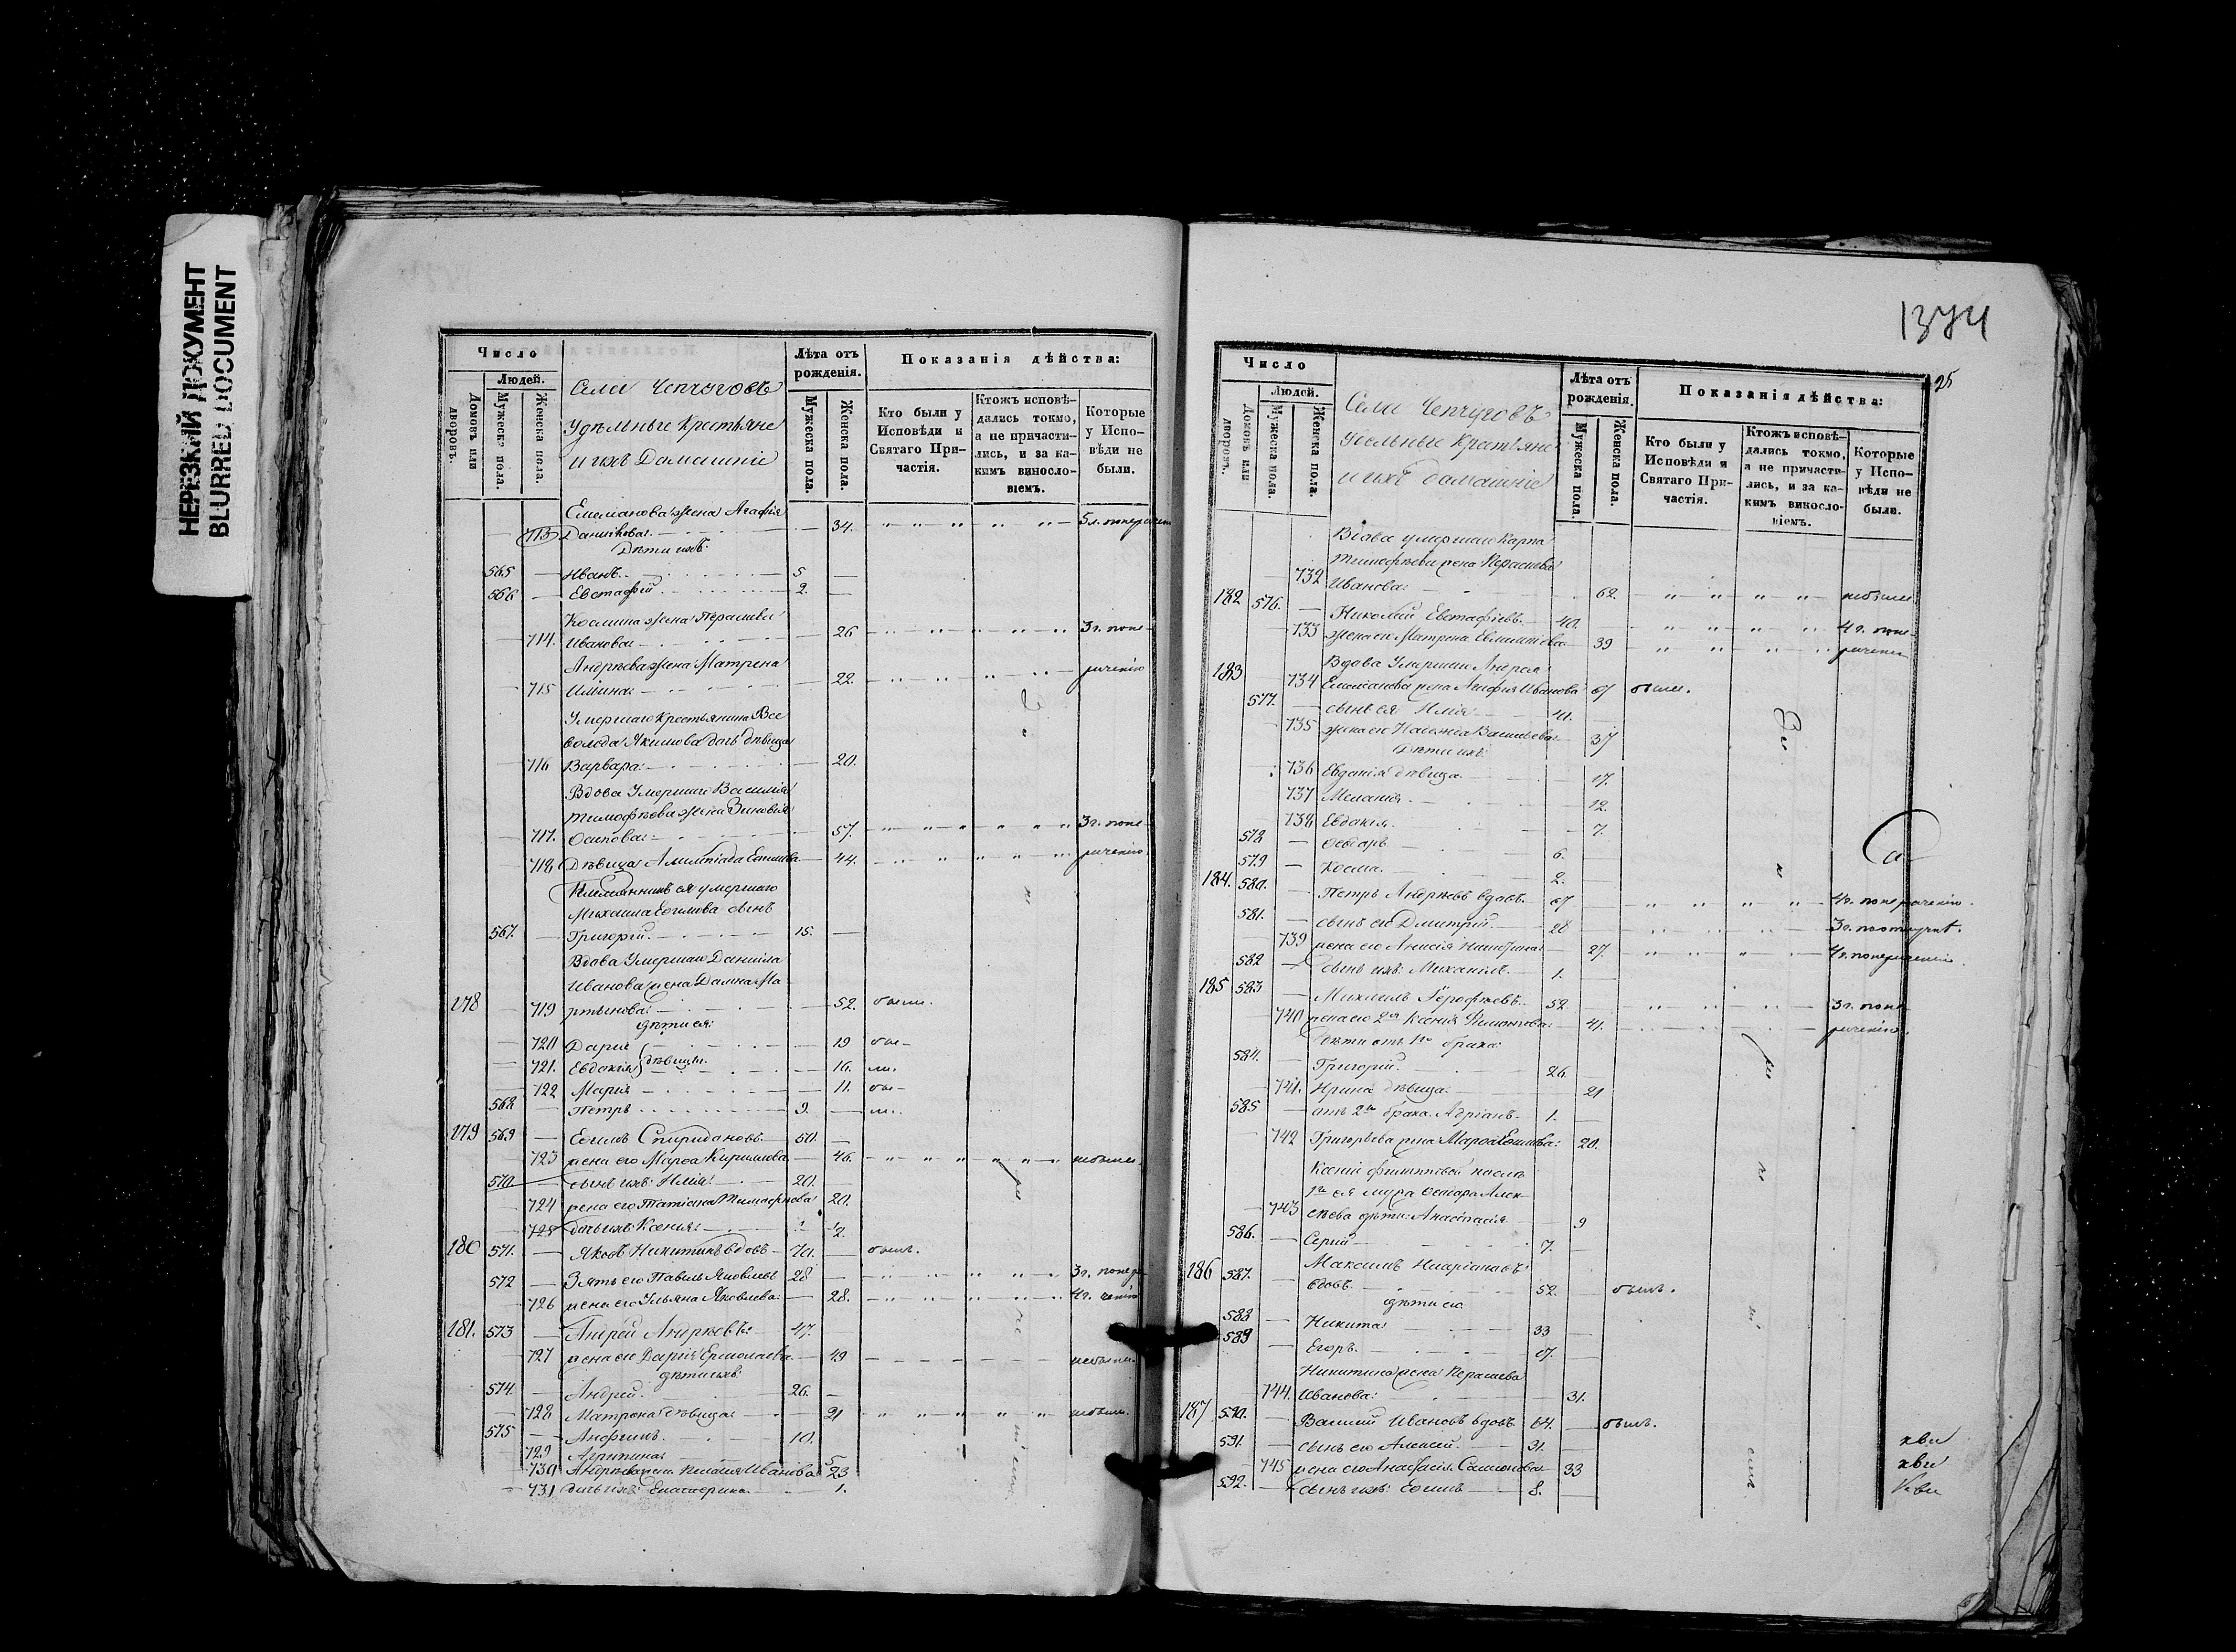 НЕРЕЗКИЙ ДОКУМЕНТ
BLURRED DOCUMENT
Число
Людей.
Домовъ или дворовъ.
Мужеска пола.
Женска пола.
Села Чепчуговъ
Удѣльные Крестьяне
и ихъ Домашніе
Лѣта отъ рожденія.
Мужеска пола.
Женска пола.
Показанія дѣйства:
Кто были у Исповѣди и Святаго Причастія.
Ктожъ исповѣдались токмо, а не причастились, и за какимъ винословіемъ.
Которые у Исповѣди не были.
Емельянова жена Агафія
713 Данилова 34. 5 л.
Дѣти ихъ:
565 Иванъ 5
566 Евстафій 2.
Космина жена Парасковья
714. Иванова 26 3 г. по не-
Андреева жена Матрена
715 Ильина 22. рачению
Умершаго крестьянина Все
волода Якимова дочь дѣвица
716 Варвара 20.
Вдова Умершаго Василія
Тимофѣева жена Зиновія
717. Осипова 57. 3 г. по не-
718 Дѣвица Ефимова 44. рачению
Племянникъ ея умершаго
Михаила Ефимова сынъ
567. Григорій 15.
Вдова Умершаго Даніила
Иванова жена Домна Ма
178 719 ртынова 52. были.
дѣти ея:
720 Дарія 19 бы-
721. Евдокія дѣвицы. 16. ли.
722 Марія 11. бы-
568 Петръ 9. ли.
179 569 Ефимъ Спиридоновъ 50.
723 жена его Марѳа Кирилова 46. не были.
570 сынъ ихъ: Илія 20.
724 жена его Татіана Тимофѣева 20.
725 дочь ихъ: Ксенія 1/2
180 571. Яковъ Никитинъ вдовъ 70. былъ.
572 Зять его Павелъ Яковлевъ 28 3 г. по нера-
726 жена его Ульяна Яковлева 28. 4 г. ченію
181. 573 Андрей Андреевъ 47.
727 жена его Дарія Ермолаева 49 не были.
дѣти ихъ:
574. Андрей 26.
728 Матрона дѣвица 21 не были.
575 Анфимъ 10.
729 Агрипина 5
730 Андреева жена Иванова 23
731 дочь ихъ: Екатерина 1.
1374
25
Число
Людей.
Домовъ или дворовъ.
Мужеска пола.
Женска пола.
Села Чепчуговъ
Удѣльные Крестьяне
и ихъ домашніе
Лѣта отъ рожденія.
Мужеска пола.
Женска пола.
Показанія дѣйства:
Кто были у Исповѣди и Святаго Причастія.
Ктожъ исповѣдались токмо, а не причастились, и за какимъ винословіемъ.
Которые у Исповѣди не были.
Вдова умершаго Карпа
Тимофѣева жена Парасковья
732 Иванова 62. не были
182 576. Николай Евстафіевъ 40. 4 г. по не-
733 жена его Матрена 39 рачению
183 Вдова Умершаго Андрея
734 Емельянова жена Агафія Иванова 67 были.
577. сынъ ея Илія 41.
735 жена его Надежда Васильева 37
Дѣти ихъ:
736 Евдокія дѣвица 17.
737 Меланія 12.
738 Евдокія 7.
578 Ѳеодоръ 6.
579 Косма 2.
184. 580. Петръ Андреевъ вдовъ 67 4 г. по нерачению.
581. сынъ его Дмитрій 28 3 г.
739 жена его Анисія 27. 4 г. по нерачению.
582 сынъ ихъ: Михаилъ 1.
185 583 Михаилъ Ерофѣевъ 52 3 г. по не-
740 жена его 2я Ксенія Филиппова 41. рачению.
Дѣти отъ 1го брака:
584. Григорій 26.
741. Ирина дѣвица 21
585 отъ 2го брака. Адріанъ 1.
742 Григорьева жена Марѳа Ефимова 20.
Ксеніи Филипповой после
1го ея мужа Ѳеодора Алек
743 сѣева дѣти: Анастасія 9
586. Сергій 7.
186 587. Максимъ
вдовъ 52. былъ.
дѣти его
588 Никита 33
589 Егоръ 17.
Никитина жена Парасковья
744. Иванова 31.
187 590. Василій Ивановъ вдовъ 64. былъ.
591. сынъ его Алексѣй 31.
745 жена его Анастасія Самсонова 33
592. сынъ ихъ: Ефимъ 8.